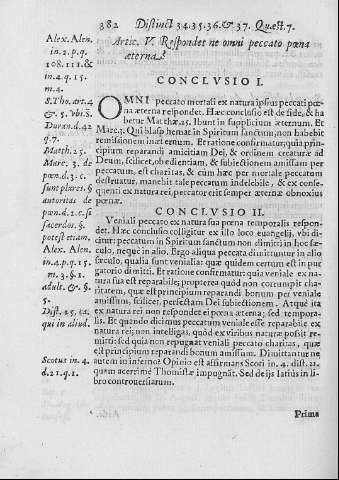 382 Distinct 34.35.36.& 37. Quæst.7.
Artic. V. Respondet ne omni peccato pœna
æterna?
Alex. Alen.
in.2.p.q.
108.111.&
in.4.q.15.
m.4.
S.Tho.art.4
& 5. vbi.s̄.
Duran.d.42
q.7.
Matth.25.
Marc. 3. de
pœn.d.3.c.
sunt plures. §
autoritas de
pœn.d.2.c.si
sacerdos. §.
potest etiam.
Alex. Alen.
in.4.p.q.15.
m.3.§.1.
adult. & §.
5.
Dist. 25.
qui in aliud.
Scotus in.4.
d.21.q.1.
CONCLVSIO I.
OMNI peccato mortali ex natura ipsius peccati pœna
æterna respondet. Hæc conclusio est de fide, & habetur
Matthæ.25. Ibunt in supplicium æternum. Et
Marc.3. Qui blasphemat in Spiritum sanctum, non habebit
remissionem in æternum. Et ratione confirmatur; quia principium
reparandi amicitiam Dei, & ordinem creaturæ ad
Deum, scilicet, obedientiam, & subiectionem amissam per
peccatum, est charitas, & cùm hæc per mortale peccatum
destruatur, manebit tale peccatum indelebile, & ex consequenti
ex natura rei, peccator erit semper æternæ obnoxius
pœnæ.
CONCLVSIO II.
Veniali peccato ex natura sua pœna temporalis respondet.
Hæc conclusio colligitur ex illo loco euangelij, vbi dicitur;
peccatum in Spiritum sanctum non dimitti in hoc sæculo,
neque in alio. Ergo aliqua peccata dimittuntur in alio
sæculo, qualia sunt venialia: quæ quidem certum est in purgatorio
dimitti. Et ratione confirmatur: quia veniale ex natura
sua est reparabile; propterea quòd non corrumpit charitatem,
quæ est principium reparandi bonum per veniale
amissum, scilicet, perfectam Dei subiectionem. Atque ita
ex natura rei non respondet ei pœna æterna; sed temporalis.
Et quando dicimus peccatum veniale esse reparabile ex
natura rei; non intelligas, quòd ex viribus naturæ possit remitti:
sed quia non repugnat veniali peccato charitas, quæ
est principium reparandi bonum amissum. Dimittantur ne
autem in inferno? Opinio est affirmans Scoti in.4. dist.21.
quam acerrimè Thomistæ impugnāt. Sed de ijs latiùs in libro
controuersiarum.
Prima